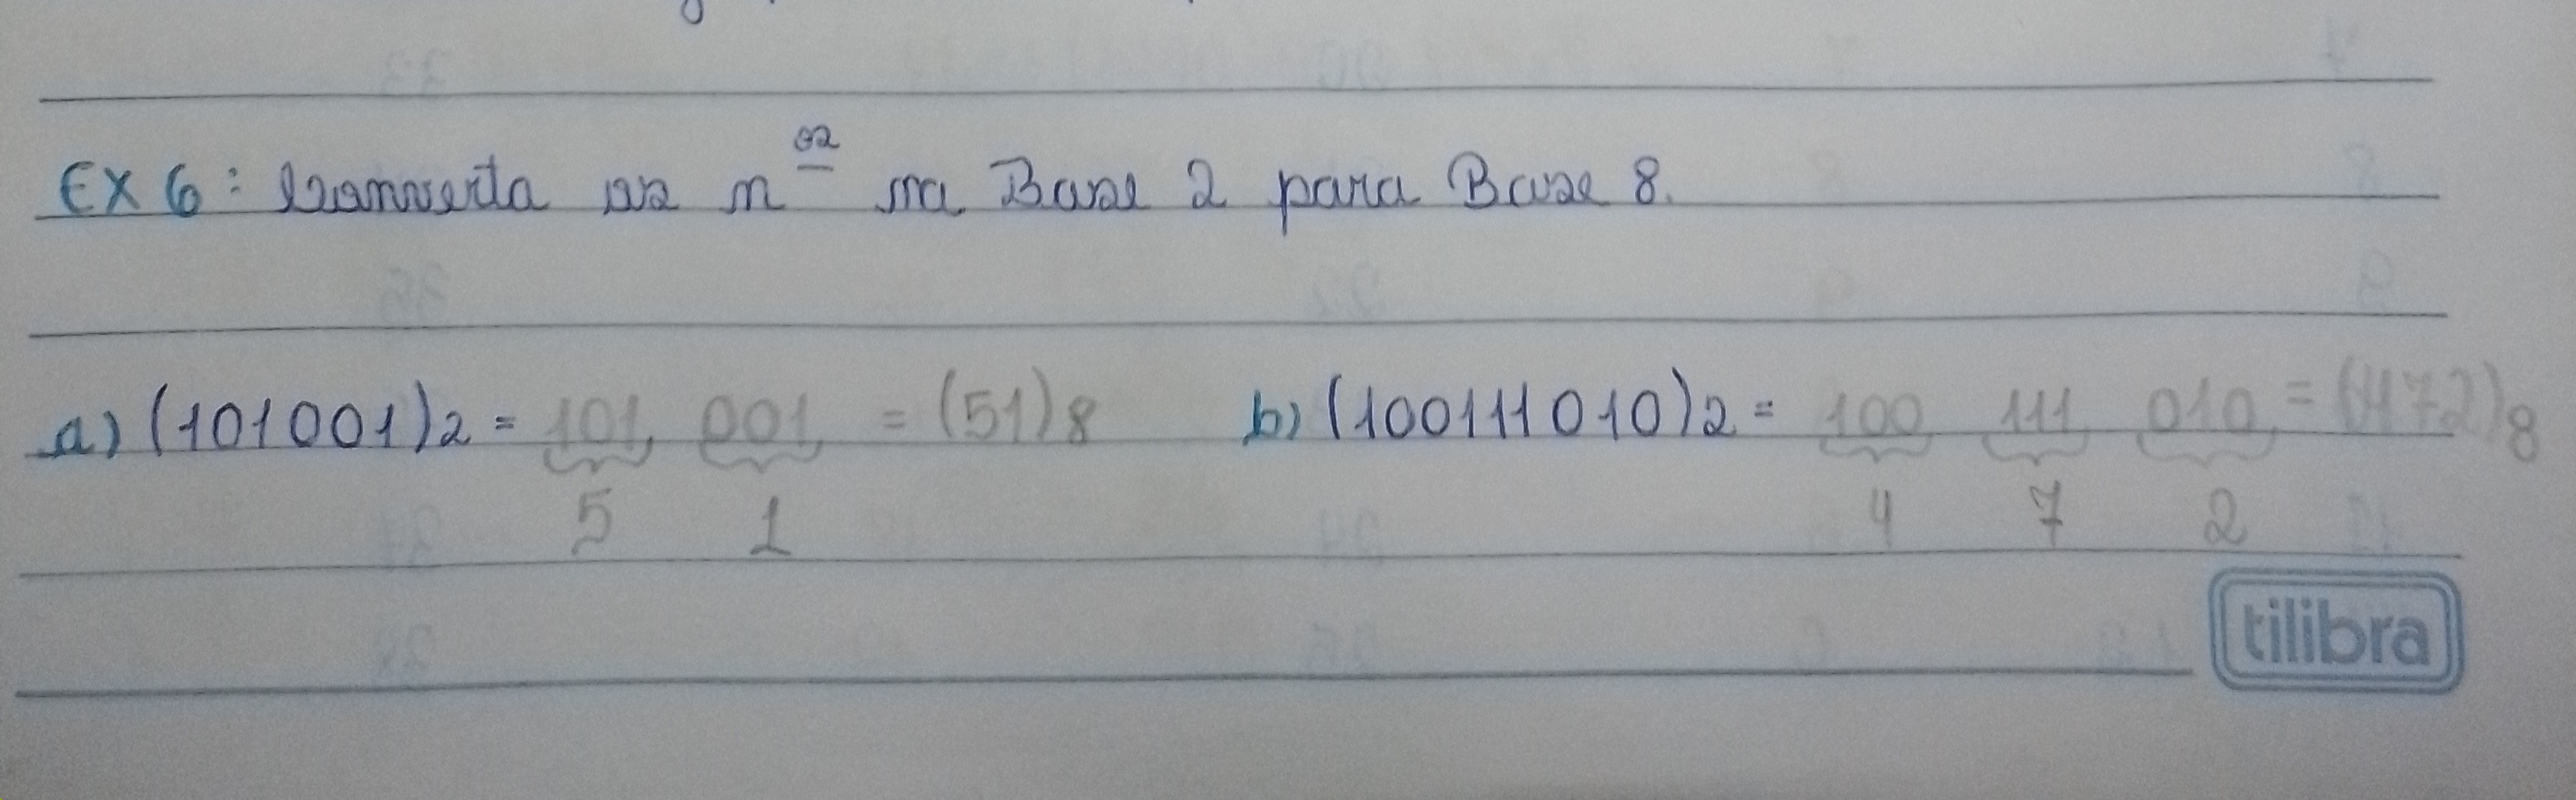 EX 6: Converta os nos na Base 2 para Base 8.
a) (101001)2 = 101 001 = (51)8 b) (100111010)2 = 100 111 010 = (472)8
5 1 4 7 2
tilibra